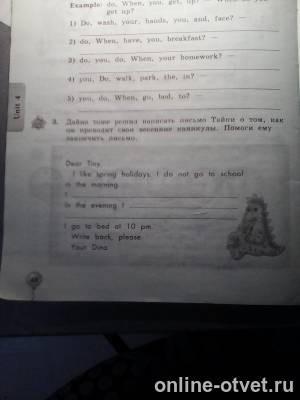 Example: do, When, you, get, up?
get up?
1) Do, wash, your, hands, you, and, face? –
2) do, When, have, you, breakfast? –
3) do, you, do, When, your homework? –
4) you, Do, walk, park, the, in? –
5) you, do, When, go, bed, to? –
Unit 4
3. Дайно тоже решил написать письмо Тайни о том, как
он проводит свои весенние каникулы. Помоги ему
закончить письмо.
Dear Tiny,
I like spring holidays. I do not go to school
in the morning.
I
In the evening I
I go to bed at 10 pm.
Write back, please.
Your Dino
online-otvet.ru